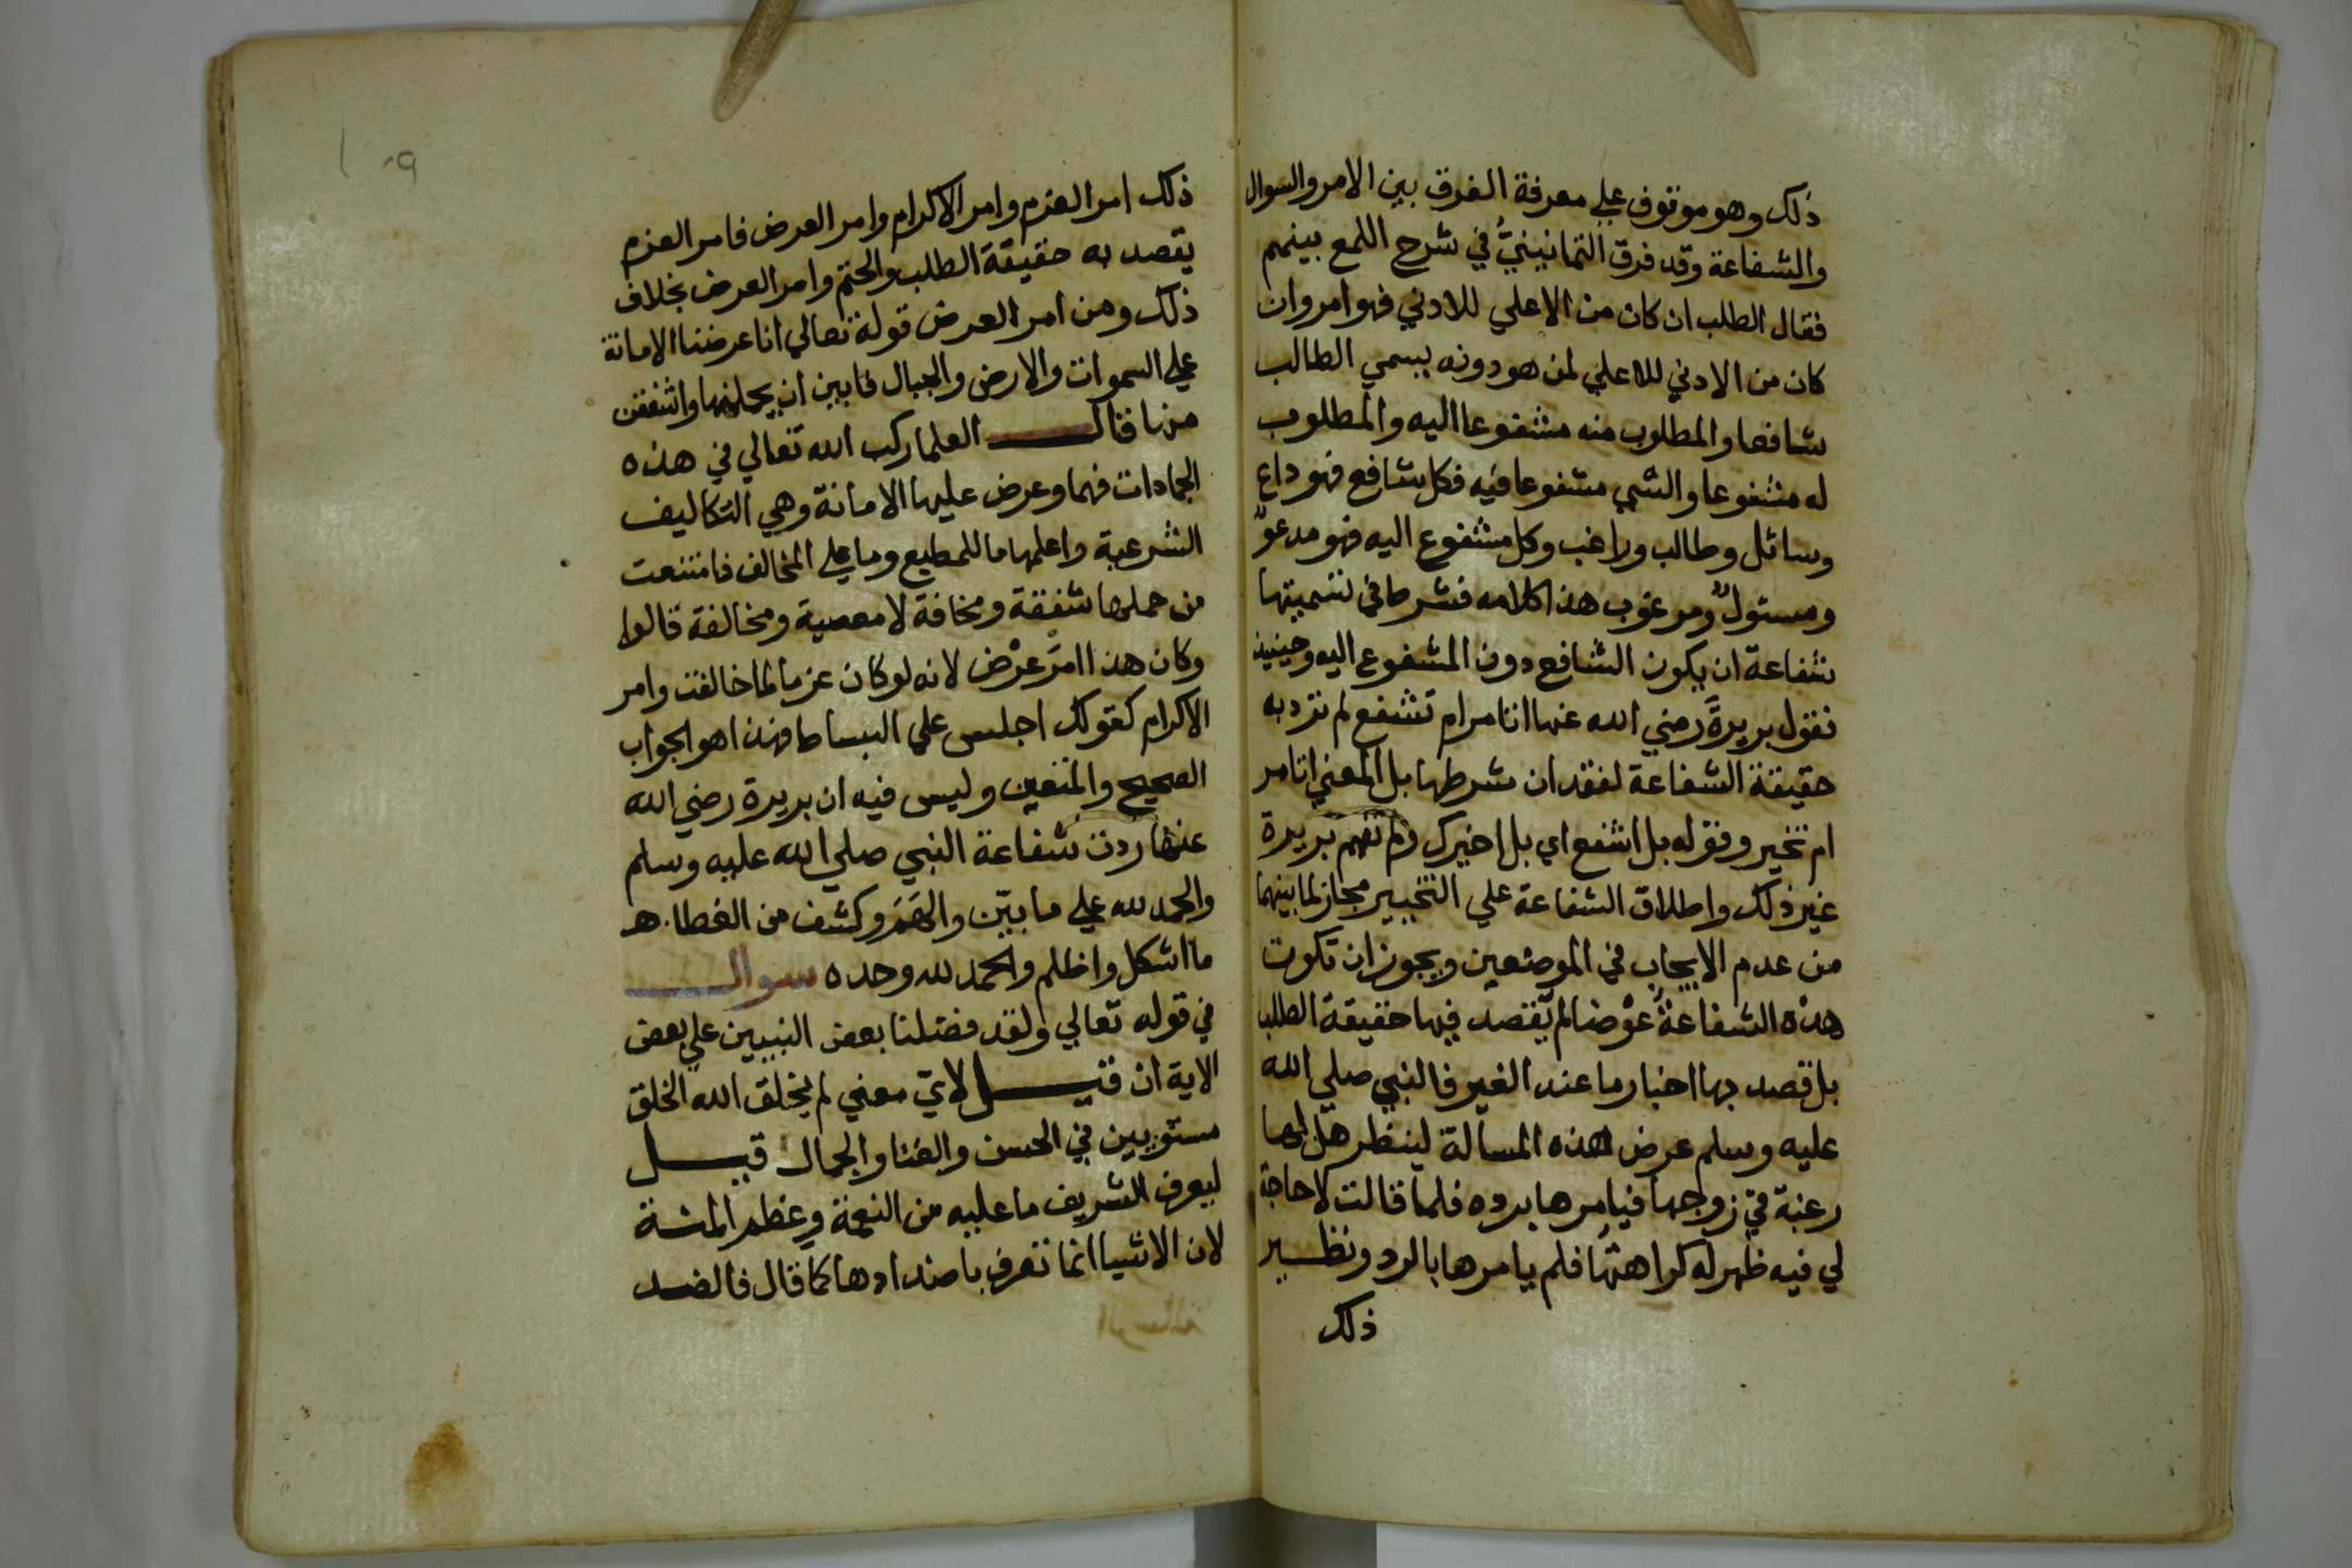 ذلك وهو موقوف علي معرفة الفرق بين الامر والسوال
والشفاعة وقد فرق الثمانينيُّ في شرح اللمع بينهم
فقال الطلب ان كان من الاعلي للادني فهو امر وان
كان من الادني للاعلي لمن هو دونه يسمي الطالب
شافعا والمطلوب منه مشفوعا اليه والمطلوب
له مشفوعا والشي مشفوعا فيه فكل شافع فهو داع
وسائل وطالب وراغب وكل مشفوع اليه فهو مدعوٌ
ومسئولٌ ومرغوب هذا كلامه فشرط في تسميتها
شفاعة ان يكون الشافع دون المشفوع اليه وحينيذ
فقول بريرةَ رضي الله عنها اتامر ام تشفع لم ترد به
حقيقة الشفاعة لفقدان شرطها بل المعني اتامر
ام تخير وقوله بل اشفع اي بل اخيرك ولم تفهم بريرة
غير ذلك واطلاق الشفاعة علي التخيير مجاز لما بينهما
من عدم الايجاب في الموضعين ويجوز ان تكون
هذه الشفاعةُ عرْضا لم يقصد فيها حقيقة الطلب
بل قصد بها اخبار ما عند الغير فالنبي صلي الله
عليه وسلم عرض لهذه المسالة لينظر هل لها
رغبة في زوجها فيامرها برده فلما قالت لا حاجة
لي فيه ظهر له كراهتها فلم يامرها بالرد ونظير
ذلك
١٠٩
ذلك امر العزم وامر الاكرام وامر العرض فامر العزم
يقصد به حقيقة الطلب والحتم وامر العرض بخلاف
ذلك ومن امر العرض قوله تعالي انا عرضنا الامانة
علي السموات والارض والجبال فابين ان يحملنها واشفقن
منها فقال العلما ركب الله تعالي في هذه
الجمادات فهما وعرض عليها الامانة وهي التكاليف
الشرعية واعلمها ما للمطيع وما علي المخالف فامتنعت
من حملها شفقة ومخافة لا معصية ومخالفة قالوا
وكان هذا امرَ عرْض لانه لو كان عزما لما خالفت وامر
الاكرام كقولك اجلس علي البساط فهذا هو الجواب
الصحيح والمتعين وليس فيه ان بريرة رضي الله
عنها ردت شفاعة النبي صلي الله عليه وسلم
والحمد لله علي ما بيّن والهَمَ وكشف من الغطا. هـ
ما اشكل واظلم والحمد لله وحده سوال
في قوله تعالي ولقد فضلنا بعض النبيين علي بعض
الاية ان قيل لايّ معني لم يخلق الله الخلق
مستويين في الحسن والغنا والجمال قيل
ليعرف الشريف ما عليه من النعمة وعظم المنة
لان الاشيا انما تعرف باضدادها كما قال فالضد